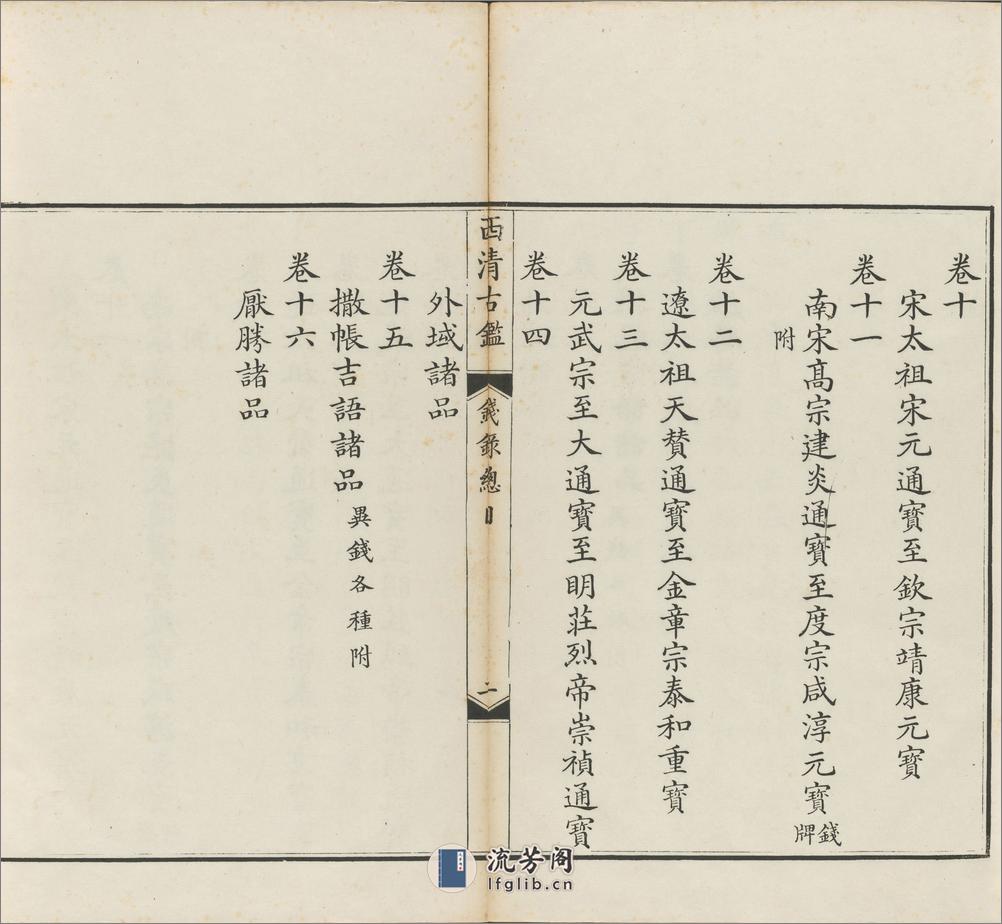 卷十
宋太祖宋元通寳至欽宗靖康元寳
卷十一
南宋髙宗建炎通寳至度宗咸淳元寳錢牌
附
卷十二
遼太祖天贊通寳至金章宗泰和重寳
卷十三
元武宗至大通寳至明莊烈帝崇禎通寳
卷十四
西清古鑑 錢錄總目 二
外域諸品
卷十五
撒帳吉語諸品異錢各種附
卷十六
厭勝諸品
流芳阁
lfglib.cn